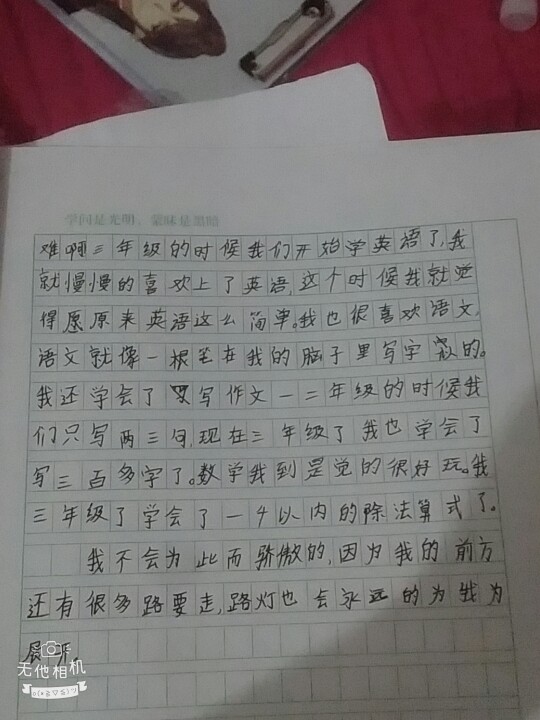 学问是光明，蒙昧是黑暗
难啊三年级的时候我们开始学英语了,我
就慢慢的喜欢上了英语,这个时候我就觉
得愿原来英语这么简单。我也很喜欢语文,
语文就像一根笔在我的脑子里写字 的。
我还学会了 写作文一二年级的时候我
们只写两三句,现在三年级了我也学会了
写三百多字了。数学我到是觉的很好玩。我
三年级了学会了一4以内的除法算式了。
我不会为此而骄傲的,因为我的前方
还有很多路要走,路灯也会永远的为我为
展开
无他相机